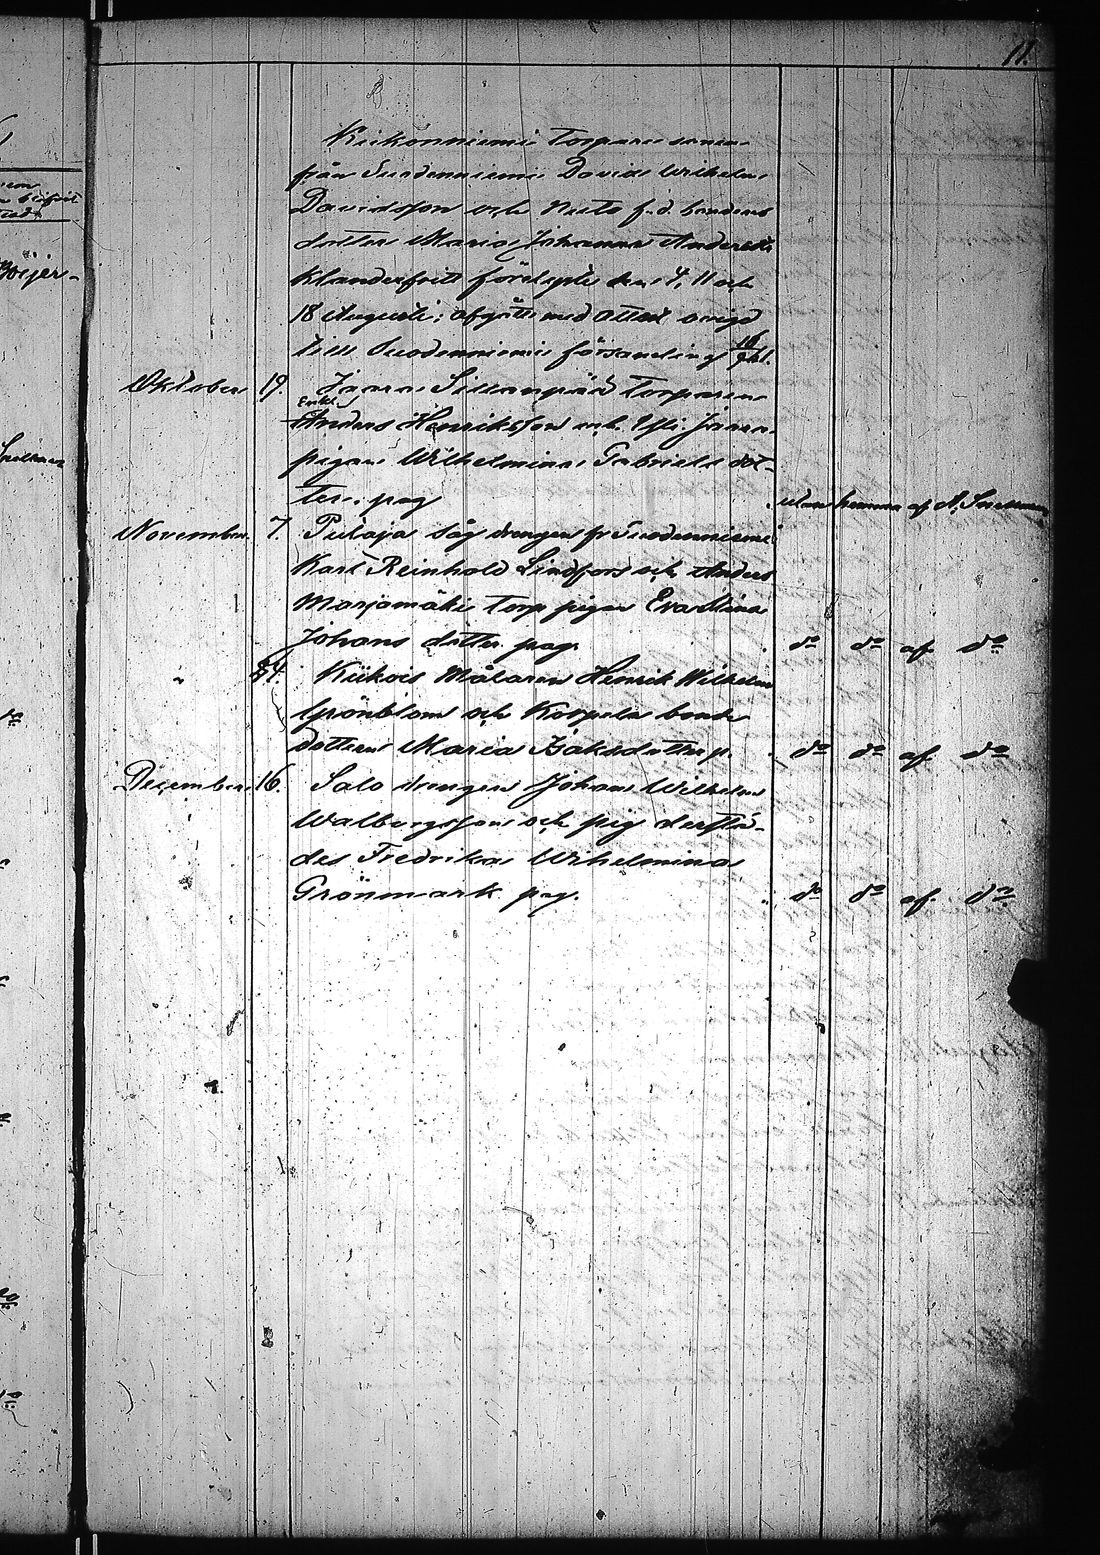 11.
Kiikonniemi Torpare sonen
från Suodenniemi David Wilhelm
Davidsson och Nuto f.d. bondens
dotter Maria Johanna Andersd.
Klanderfritt förelyste den 4, 11 och
18 Augusti; afgått med attest
till Suodenniemi församling
Oktober 19. Jaara Sillanpää Torparen
Enkl.
Anders Henriksson och Jaara
pigan Wilhelmina Gabriels dot-
ter: pag utan hemma af A. Snellman
November 7. Pulaja såg drengen fr Suodenniemi
Karl Reinhold Lindfors och Anders
Marjamäki Torp pigan Eva Stina
Johans dotter. pag. do do af do
" 24. Kiikois Målaren Henrik Wilhelm
Grönblom och Korpela bonde
dottern Maria Isaksdotter p. do do af do
December 16. Salo drengen Johan Wilhelm
Walbergsson och pig derstä-
des Fredrika Wilhelmina
Grönmark pag. do do af. do